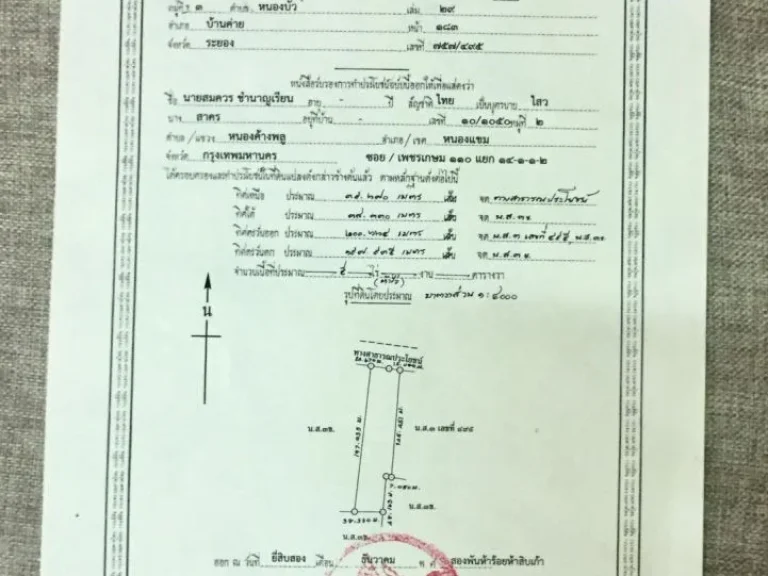 หมู่ที่ ๓ ตำบล หนองบัว เล่ม ๒๙
อำเภอ บ้านค่าย หน้า ๑๘๓
จังหวัด ระยอง เลขที่ ๗๕๗/๔๙๕
หนังสือรับรองการทำประโยชน์ฉบับนี้ออกให้เพื่อแสดงว่า
ชื่อ นายสมควร ชำนาญเรียน อายุ - ปี สัญชาติ ไทย เป็นบุตรนาย ไสว
นาง สาคร อยู่ที่บ้าน - เลขที่ ๑๐/๑๐๕๐ หมู่ที่ ๒
ตำบล/แขวง หนองค้างพลู อำเภอ/เขต หนองแขม
จังหวัด กรุงเทพมหานคร ซอย/เพชรเกษม ๑๑๐ แยก ๑๔-๑-๑-๒
ได้ครอบครองและทำประโยชน์ในที่ดินแปลงดังกล่าวข้างต้นแล้ว ตามหลักฐานดังต่อไปนี้
ทิศเหนือ ประมาณ ๓๕.๒๗๐ เมตร เส้น จด ทางสาธารณประโยชน์
ทิศใต้ ประมาณ ๓๙.๓๓๐ เมตร เส้น จด น.ส.๓ข
ทิศตะวันออก ประมาณ เมตร เส้น จด น.ส.๓ เลขที่ น.ส.๓ข
ทิศตะวันตก ประมาณ ๑๙๗.๙๓๕ เมตร เส้น จด น.ส.๓ข
จำนวนเนื้อที่ประมาณ ๕ ไร่ - งาน - ตารางวา
(ห้าไร่)
รูปที่ดินโดยประมาณ มาตราส่วน ๑:๔๐๐๐
น
ทางสาธารณประโยชน์
น.ส.๓ข. น.ส.๓ เลขที่ ๔๙๕
197.935 ม.
39.330 ม. น.ส.๓ข.
น.ส.๓ข.
ออก ณ วันที่ ยี่สิบสอง เดือน ธันวาคม พ.ศ. สองพันห้าร้อยห้าสิบเก้า